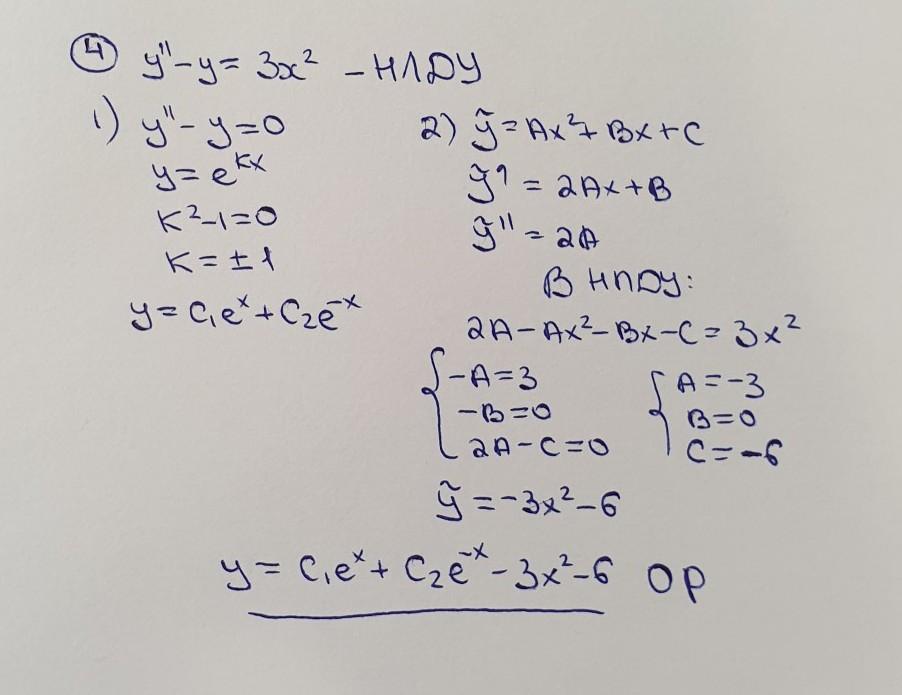 ④ y'' - y = 3x² - НЛДУ
1) y'' - y = 0
y = e^{kx}
k² - 1 = 0
k = ± 1
y = C₁eˣ + C₂e⁻ˣ
2) ỹ = Ax² + Bx + C
ỹ' = 2Ax + B
ỹ'' = 2A
В НЛДУ:
2A - Ax² - Bx - C = 3x²
{ -A = 3
-B = 0
2A - C = 0
{ A = -3
B = 0
C = -6
ỹ = -3x² - 6
y = C₁eˣ + C₂e⁻ˣ - 3x² - 6 ОР